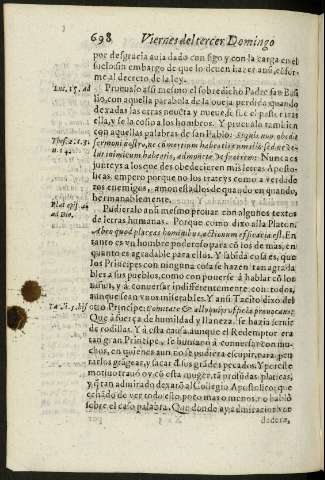 698 Viernes del tercer Domingo
por desgracia auia dado con sigo y con la carga en el
suelo: sin embargo de que lo deuen hazer ansi,
me al decreto de la ley.
Luc. 15.
Prueualo assi mesmo el sobredicho Padre san
lio, con aquella parabola de la oueja perdida: quando
dexadas las otras nouēta y nueue, se fue el pastor tras
ella, y se la coxio a los hombros. Y prueualo tambien
con aquellas palabras de san Pablo: Si quis non obedit
sermoni nostro, ne cōmercium habeatis cum illo: sed ne ve-
lut inimicum habeatis, admonete vt fratrem: Nunca os
junteys a los que des obedecieren mis letras Aposto-
licas, empero porque no los trateys como a verdade
ros enemigos, amonestadlos de quando en quando,
hermanablemente.
Pudieralo ansi mesmo prouar con algunos textos
de letras humanas. Porque como dixo alla Platon,
Ab eo quod placeas hominibus, actionum efficacia est. En
tanto es vn hombre poderoso para cō los de mas, en
quanto es agradable para ellos. Y sabida cosa es, que
los Principes con ninguna cosa se hazen tan agrada
bles a sus pueblos, como con ponerse à hablar cō los
suyos, y à conuersar indifferentemente con todos,
aunque sean vnos miserables. Y ansi Tacito dixo del
otro Principe: Comitate & alloquijs officia prouocans:
Que à fuerça de humildad y llaneza, se hazia seruir
de rodillas. Y à esta causa, aunque el Redemptor era
tan gran Principe, se humanò à conuersar con mu-
chos, en quiēnes aun no se pudiera escupir, para, peu
rarlos, grãgear, y sacar d'los grādes pecados. Y por este
motiuo trauò oy cō esta muger, tā profūdas platicas,
y q̃ tan admirado dexarō al Collegio Apostolico; que
echado de ver todo ello, poto mas o menos, no hablò
sobre el caso palabra. Que donde ay admiraciones ver
daderas,